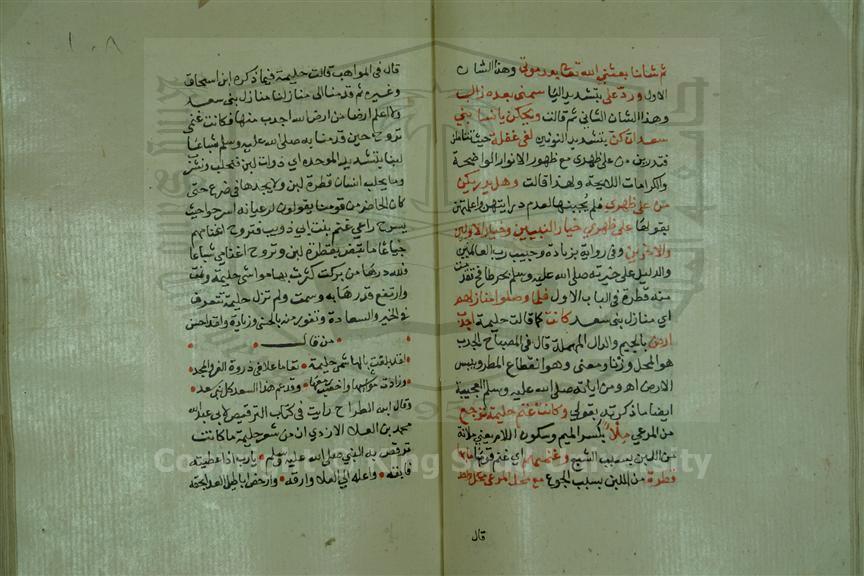 ثم شانا بعثني الله تعالى بعد موتى وهذا الشان
الاول وردّ على بتشديد اليا سمنى بعد هزالى
وهذا الشان الثاني ثم قالت ويحكن يا نسا بني
سعد انكن بتشديد النونين لفي غفلة حيث
على ظهرى مع ظهور الانوار الواضحة
والكرامات اللايحة ولهذا قالت وهل تدرين
من على ظهرى فلم يجبنها لعدم درايتهن واعلمتهن
بقولها على ظهرى خيار النبيين وخيار الاولين
والاخرين وفي رواية بزيادة وحبيب رب العالمين
والدليل على خيرته صلى الله عليه وسلم
منه قطرة في الباب الاول فلما وصلوا منازلهم
اي منازل بني سعد كانت كما قالت حليمة اجدب
ارض بالجيم والدال المهملة قال في المصباح الجدب
هو المحل وزنا ومعنى وهو انقطاع المطر ويبس
الارض اه ومن اياته صلى الله عليه وسلم العجيبة
ايضا ما ذكره بقوله وكانت غنم حليمة ترجع
من المرعي ملأ بكسر الميم وسكون اللام يعني ملانة
من اللبن بسبب الشبع وغنمهم اي غنم قومها ما بها
قطرة من اللبن بسبب الجوع مع محل المرعى
قال
١٠٨
قال في المواهب قالت حليمة فيما ذكره ابن اسحاق
وغيره ثم قدمنا الى منازلنا منازل بنى سعد
ولا اعلم ارضا من ارض الله اجدب منها فكانت غنمي
تروح حين قدمنا به صلى الله عليه وسلم شباعا
لبنا بتشديد الموحده اي ذوات لبن فنحلب ونشرب
وما يحلب انسان قطرة لبن ولا يجدها في ضرع حتى
كان الحاضر من قومنا يقولون لرعيانه اسرحوا حيث
يسرح راعي غنم بنت ابي ذويب فتروح اغنامهم
جياعا ما تبض بقطرة لبن وتروح اغنامي شباعا
فلله درها من بركت كثرت بها مواشي حليمة ونمت
وارتفع قدرها به وسمت ولم تزل حليمة تتعرف
في الخير والسعادة وتفوز منه بالحسنى وزيادة ولقد احسن
من قال
لقد بلغت بالهاشمي حليمة • مقاما علا في ذروة العز والمجد
وزادت مواشيها واخصب ربعها • وقد عم هذا السعد كل بنى سعد
وقال ابن الطراح رايت في كتاب الترقيص لابي عبد الله
محمد بن المعلا الازدي ان من شعر حليمة ما كانت
ترقص به النبي صلى الله عليه وسلم • يا رب اذ اعطيته
فابقه • واعله الى العلا وارقه • وادحض اباطيل العدا بحقه
Copyright © King Saud University